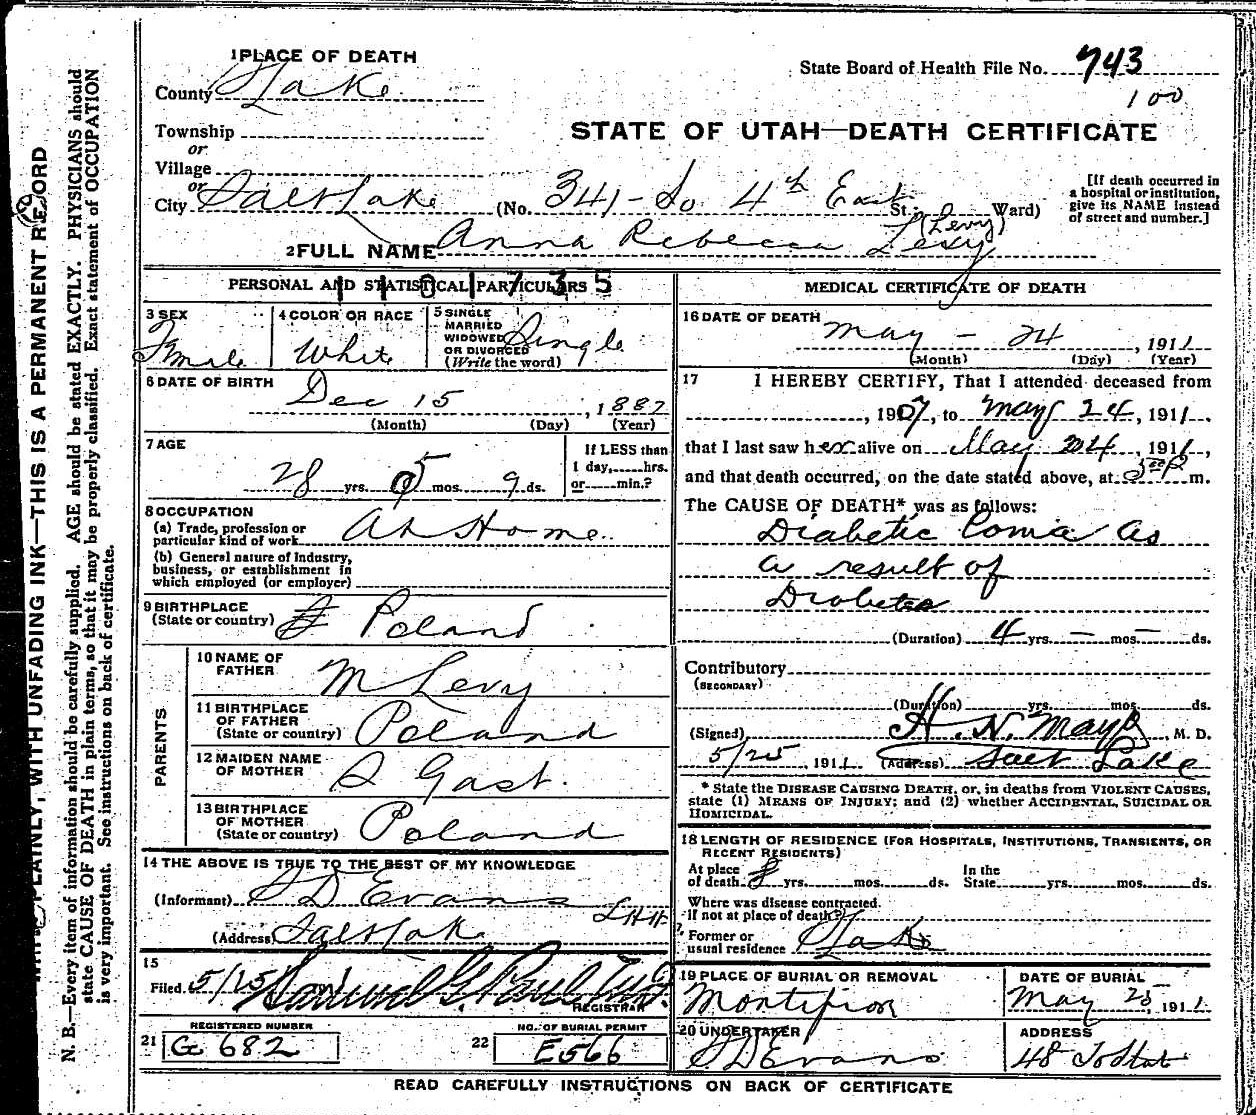 1 PLACE OF DEATH
County S Lake
State Board of Health File No. 743
100
Township
or
Village
or
City Salt Lake (No. 341 - So 4th East St. Ward)
STATE OF UTAH—DEATH CERTIFICATE
[If death occurred in a hospital or institution, give its NAME instead of street and number.]
(Levy)
2 FULL NAME Anna Rebecca Levy
PERSONAL AND STATISTICAL PARTICULARS
1101735
3 SEX
Female
4 COLOR OR RACE
White
5 SINGLE
MARRIED
WIDOWED
OR DIVORCED
(Write the word)
Single
6 DATE OF BIRTH
Dec 15, 1882
(Month) (Day) (Year)
7 AGE
28 yrs. 5 mos. 9 ds.
If LESS than
1 day, hrs.
or min.?
8 OCCUPATION
(a) Trade, profession or
particular kind of work At Home
(b) General nature of Industry,
business, or establishment in
which employed (or employer)
9 BIRTHPLACE
(State or country) Poland
PARENTS
10 NAME OF
FATHER M Levy
11 BIRTHPLACE
OF FATHER
(State or country) Poland
12 MAIDEN NAME
OF MOTHER Gast.
13 BIRTHPLACE
OF MOTHER
(State or country) Poland
14 THE ABOVE IS TRUE TO THE BEST OF MY KNOWLEDGE
(Informant) S D Evans
(Address) Salt Lake
15
Filed 5/25 Samuel G Paul
REGISTRAR
21 REGISTERED NUMBER
G 682
22 NO. OF BURIAL PERMIT
E566
MEDICAL CERTIFICATE OF DEATH
16 DATE OF DEATH
May - 24, 1911
(Month) (Day) (Year)
17 I HEREBY CERTIFY, That I attended deceased from
, 1907, to May 24, 1911,
that I last saw her alive on May 24, 1911,
and that death occurred, on the date stated above, at m.
The CAUSE OF DEATH* was as follows:
Diabetic Coma as
a result of
Diabetes
(Duration) 4 yrs. — mos. — ds.
Contributory
(SECONDARY)
(Duration) yrs. mos. ds.
(Signed) H. N. Mayo, M. D.
5/25, 1911 (Address) Salt Lake
* State the DISEASE CAUSING DEATH, or, in deaths from VIOLENT CAUSES,
state (1) MEANS OF INJURY; and (2) whether ACCIDENTAL, SUICIDAL OR
HOMICIDAL.
18 LENGTH OF RESIDENCE (FOR HOSPITALS, INSTITUTIONS, TRANSIENTS, OR
RECENT RESIDENTS)
At place In the
of death yrs. mos. ds. State yrs. mos. ds.
Where was disease contracted.
If not at place of death?
Former or
usual residence S Lake
19 PLACE OF BURIAL OR REMOVAL
Montifior
DATE OF BURIAL
May 25, 1911
20 UNDERTAKER
S D Evans
ADDRESS
48
READ CAREFULLY INSTRUCTIONS ON BACK OF CERTIFICATE
PLAINLY, WITH UNFADING INK—THIS IS A PERMANENT RECORD
N. B.—Every item of information should be carefully supplied. AGE should be stated EXACTLY. PHYSICIANS should
state CAUSE OF DEATH in plain terms, so that it may be properly classified. Exact statement of OCCUPATION
is very important. See instructions on back of certificate.